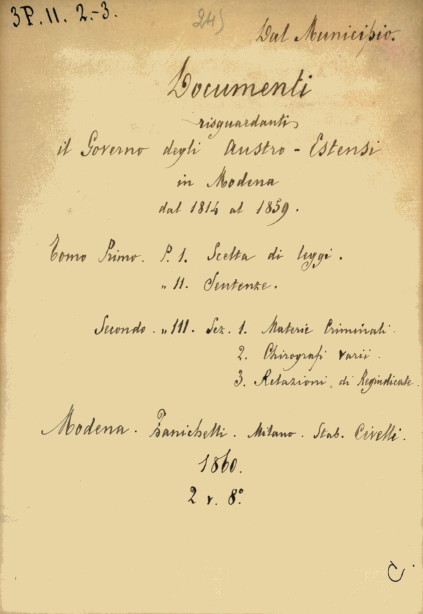 3P. 11. 2.-3.
245
Dal Municipio.
Documenti
risguardanti
il Governo degli Austro - Estensi
in Modena
dal 1814 al 1859.
Tomo Primo. P. 1. Scelta di leggi.
" 11. Sentenze.
Secondo. " 111. Sez. 1. Materie Criminali.
2. Chirografi varii.
3. Relazioni di Regiudicate.
Modena. Zanichelli. Milano. Stab. Civelli.
1860.
2 v. 8º
C.